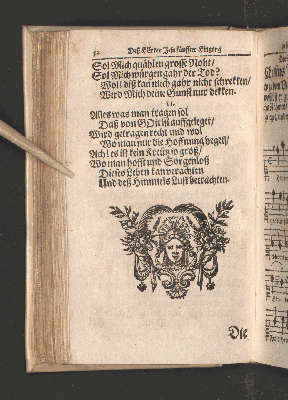 52 Deß Hirten Jesu
Sol Mich quählen grosse Noht/
Sol Mich würgen gahr der Tod?
Woll diß kan mich gahr nicht schrekken/
Wird Mich deine Gunst nur dekken.
11.
Alles was man tragen sol
Daß von GOtt ist auffgeleget/
Wird getragen recht und wol
Wo man nur die Hoffnung heget/
Ach! es ist kein Kreütz so groß/
Wo man hofft und Sorgenloß
Dieses Leben kan verachten
Und deß Himmels Lust betrachten.
Die